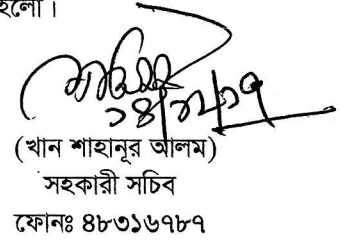 হলো।
১৪/১২/১৭
(খান শাহানূর আলম)
সহকারী সচিব
ফোনঃ ৪৮৩১৬৭৮৭